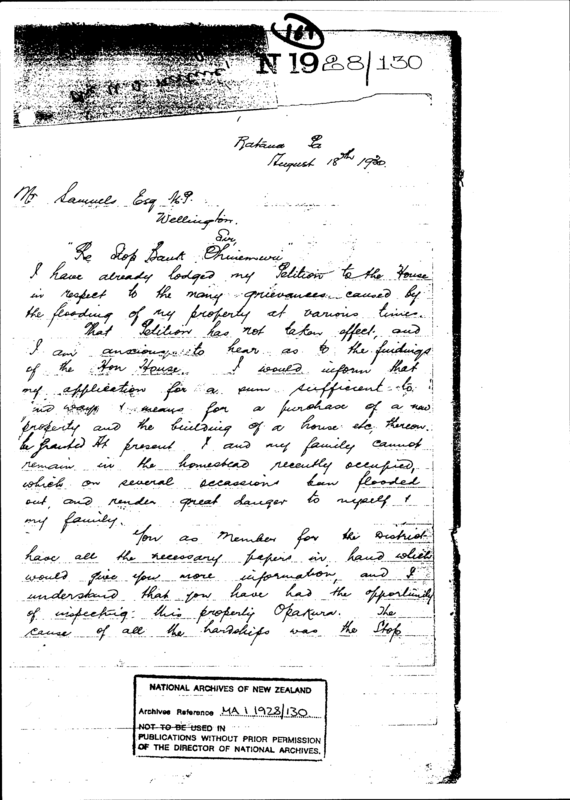 164
N 1928/130
Ratana Pa
August 18th 1930.
Mr Samuels Esq M.P.
Wellington.
Sir
"Re Stop Bank Ohinemuri
I have already lodged my Petition to the House
in respect to the many grievances caused by
the flooding of my property at various times.
That Petition has not taken effect, and
I am anxious to hear as to the findings
of the Hon House. I would inform that
my application for a sum sufficient to
ways & means for a purchase of a new
property and the building of a house etc thereon.
be granted At present I and my family cannot
remain in the homestead recently occupied,
which on several occassions been flooded
out, and render great danger to myself &
my family.
You as Member for the District
have all the necessary papers in hand which
would give you more information, and I
understand that you have had the opportunity
of inspecting this property Opakura. The
cause of all the hardships was the Stop
NATIONAL ARCHIVES OF NEW ZEALAND
Archives Reference MA 1 1928/130
NOT TO BE USED IN
PUBLICATIONS WITHOUT PRIOR PERMISSION
OF THE DIRECTOR OF NATIONAL ARCHIVES.